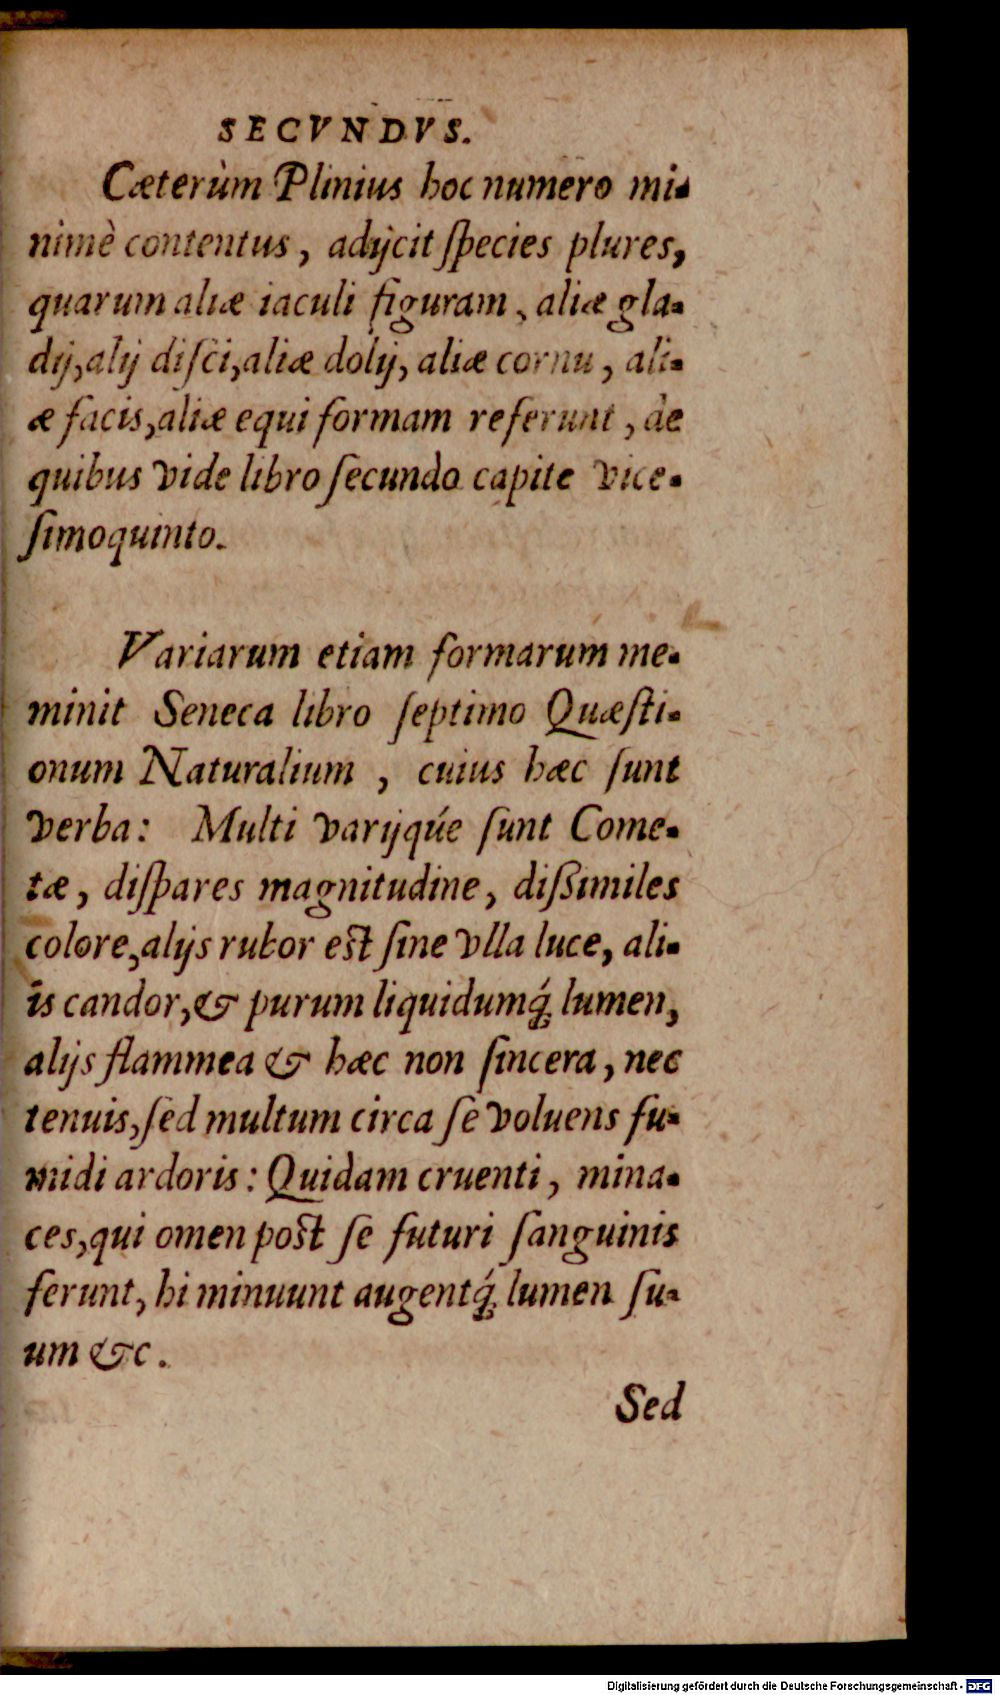 SECVNDVS.
Cæterùm Plinius hoc numero mi-
nimè contentus, adijcit ſpecies plures,
quarum aliæ iaculi figuram, aliæ gla-
dij, alij diſci, aliæ dolij, aliæ cornu, ali-
æ facis, aliæ equi formam referunt, de
quibus vide libro ſecundo capite vice-
ſimoquinto.
Variarum etiam formarum me-
minit Seneca libro ſeptimo Quæſti-
onum Naturalium, cuius hæc ſunt
verba: Multi varijqúe ſunt Come-
tæ, diſpares magnitudine, diſsimiles
colore, alijs rubor eſt ſine vlla luce, ali-
is candor, & purum liquidumq́; lumen,
alijs flammea & hæc non ſincera, nec
tenuis, ſed multum circa ſe voluens fu-
midi ardoris: Quidam cruenti, mina-
ces, qui omen poſt ſe futuri ſanguinis
ferunt, hi minuunt augentq́; lumen ſu-
um &c.
Sed
Digitalisierung gefördert durch die Deutsche Forschungsgemeinschaft - DFG